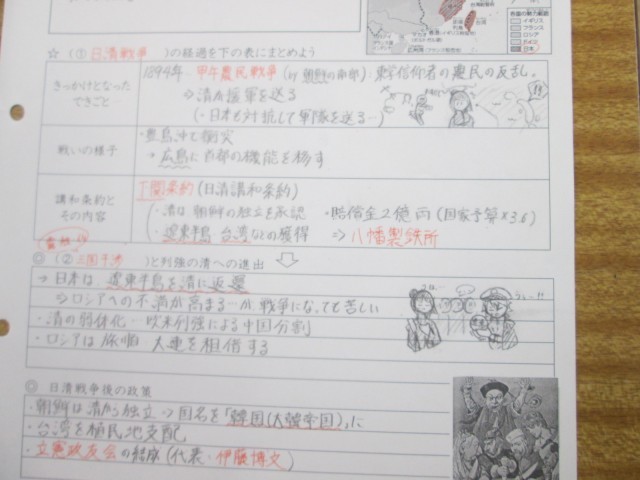 各国の勢力範囲
イギリス
フランス
ロシア
ドイツ
日本
☆ (① 日清戦争 )の経過を下の表にまとめよう
きっかけとなったできごと
1894年 甲午農民戦争 (in 朝鮮の南部) 東学信仰者の農民の反乱。
⇒ 清が援軍を送る
(・日本も対抗して軍隊を送る…)
戦いの様子
・豊島沖で衝突
→ 広島に首都の機能を移す
講和条約とその内容
下関条約 (日清講和条約)
・清は 朝鮮の独立を承認 ・賠償金2億両 (国家予算×3.6)
・遼東半島 台湾などの獲得 ⇒ 八幡製鉄所
◎ (② 三国干渉 )と列強の清への進出
→ 日本は 遼東半島を清に返還
⇒ ロシアへの不満が高まる…が、戦争になっても苦しい
・清の弱体化…欧米列強による中国分割
・ロシアは 旅順 大連を租借する
◎ 日清戦争後の政策
・朝鮮は清から独立 → 国名を「韓国(大韓帝国)」に
・台湾を植民地支配
・立憲政友会の結成 (代表・伊藤博文)